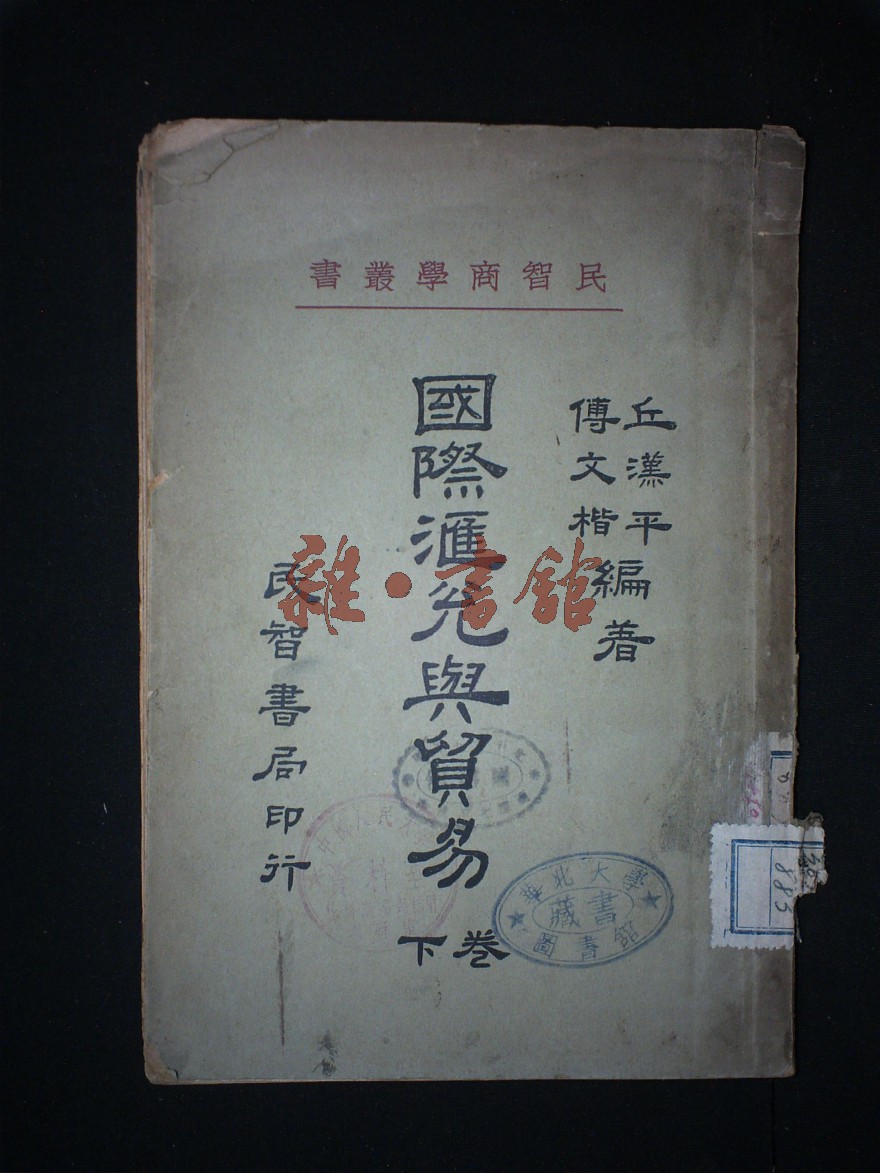 民智商學叢書
丘漢平
傅文楷
編著
國際滙兌與貿易
下卷
民智書局印行
雜·書館
華北大學
藏書
圖書館
883